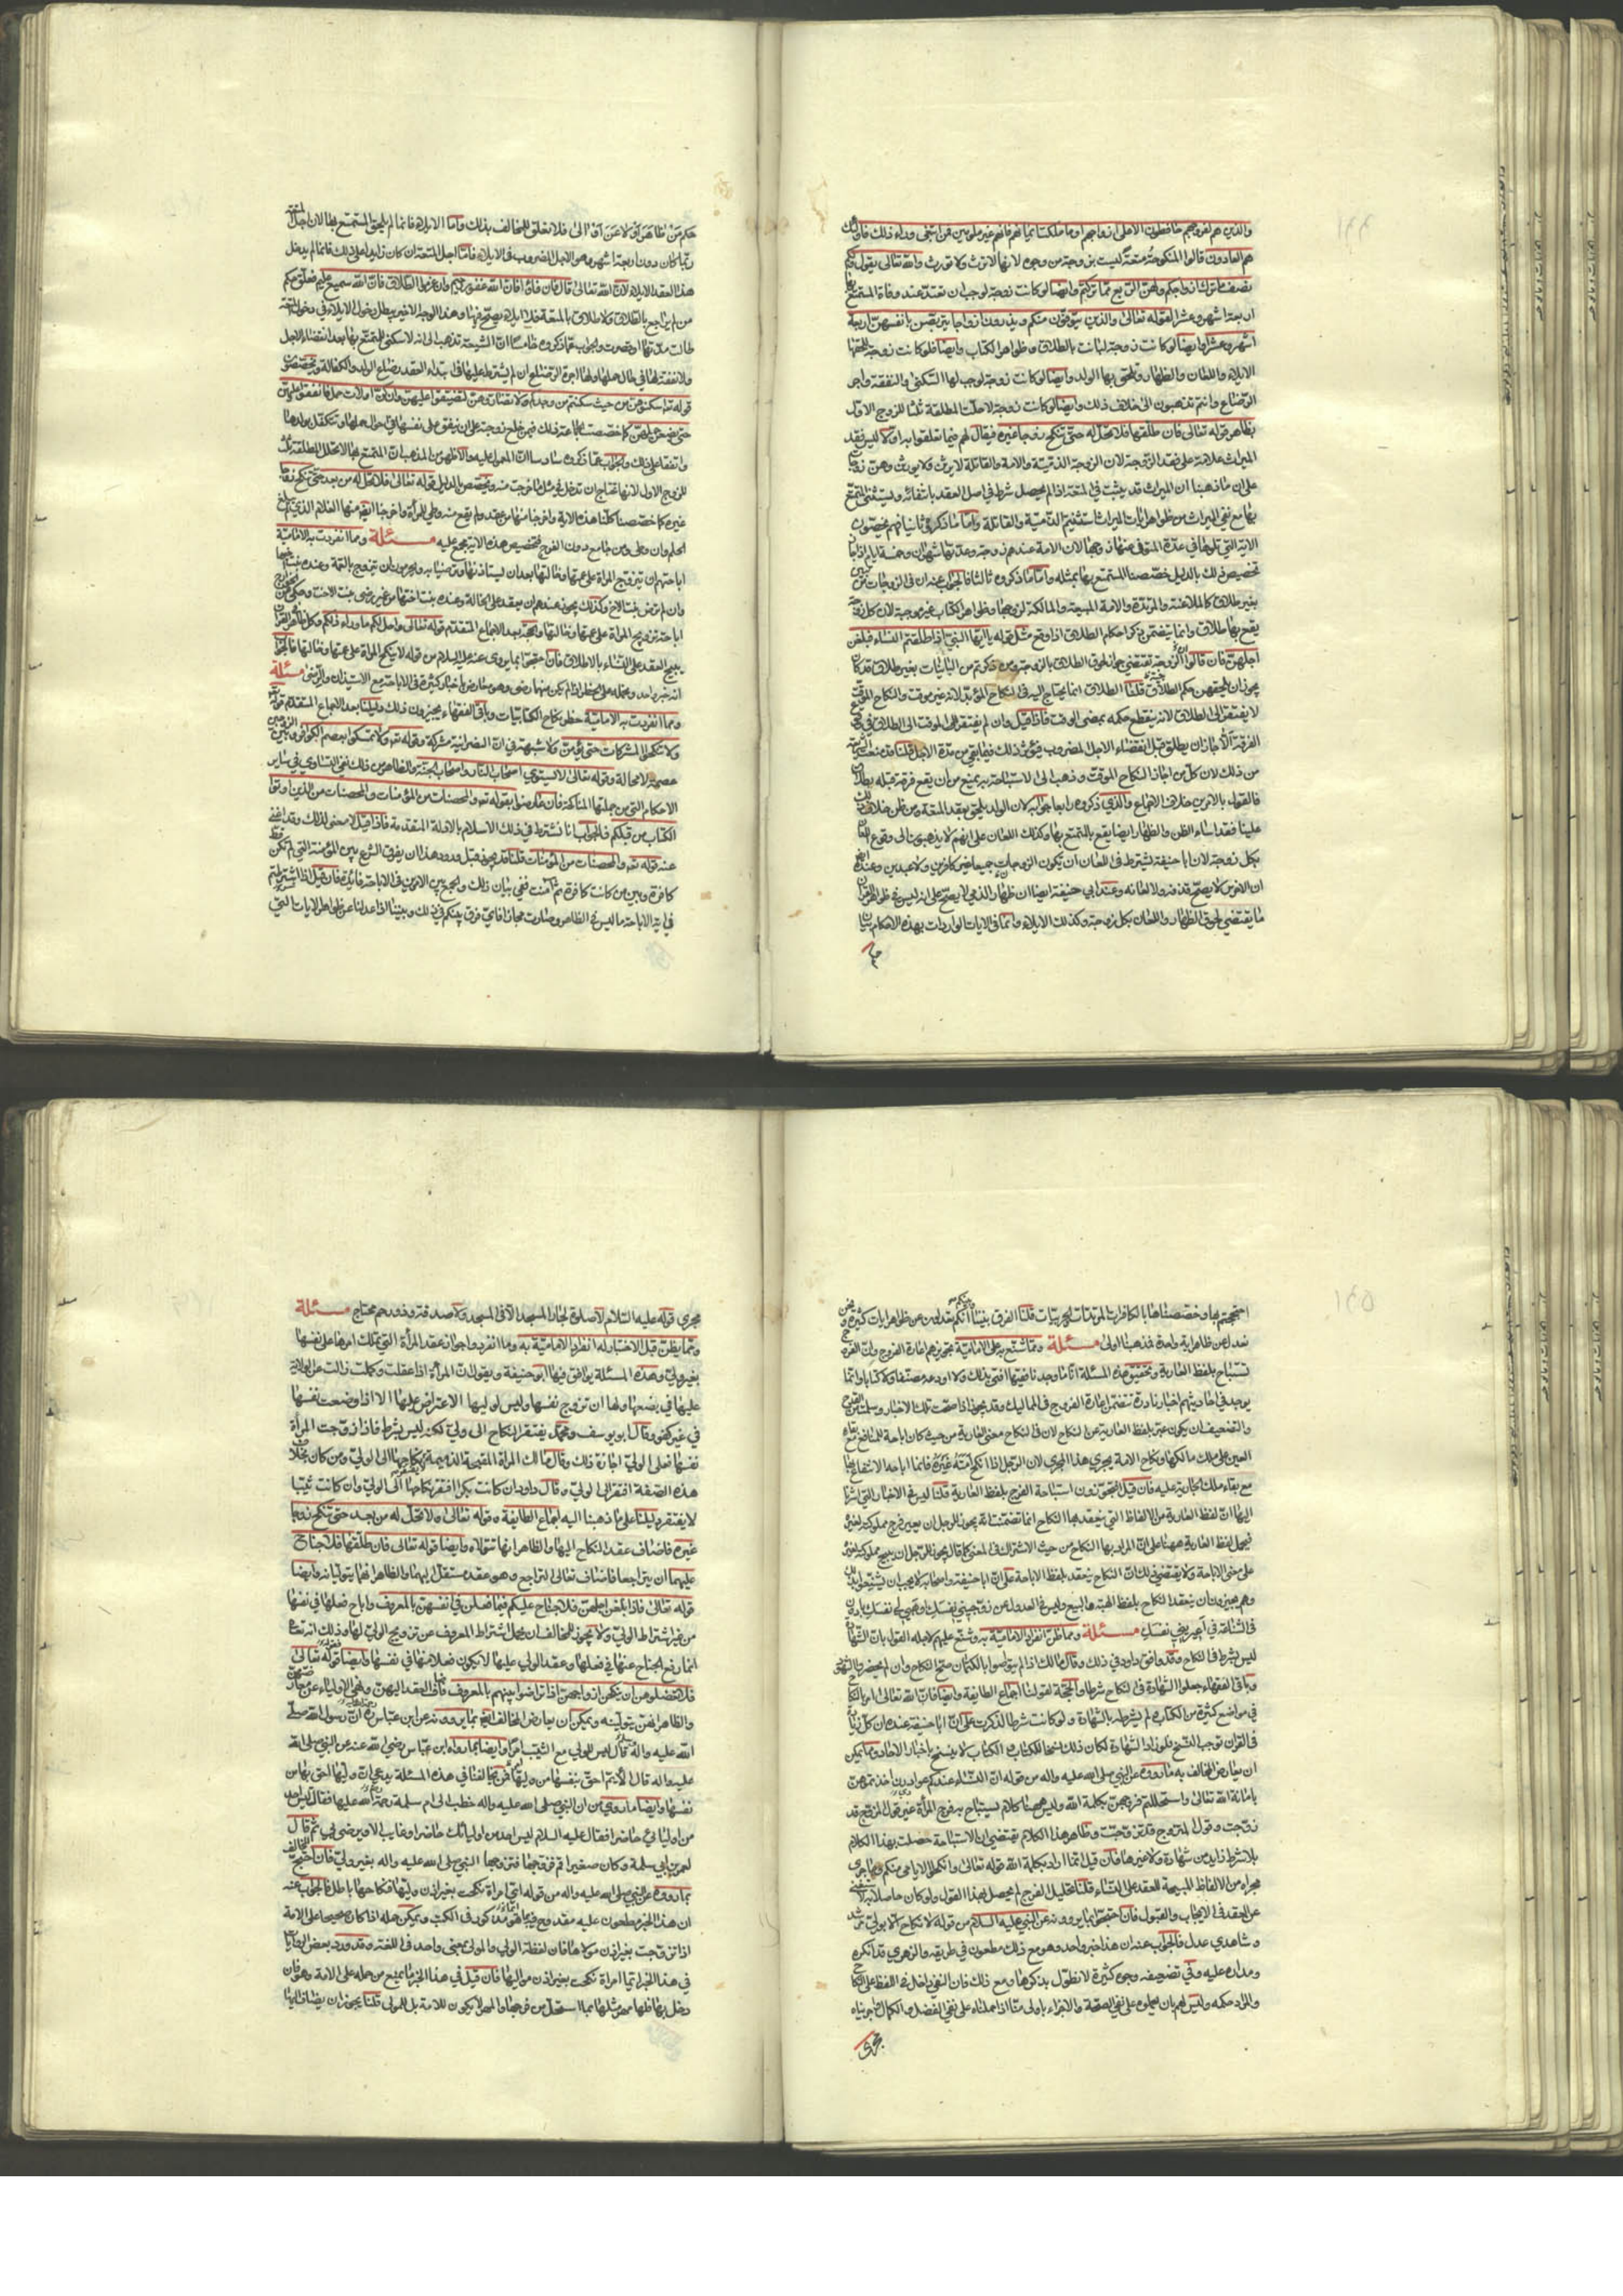 والذين هم لفروجهم حافظون الا على ازواجهم او ما ملكت ايمانهم فانهم غير ملومين فمن ابتغى وراء ذلك فاولئك
هم العادون قالوا المنكوحة متعة ليست بزوجة من وجوه لانها لا ترث ولا تورث والله تعالى يقول ولكم
نصف ما ترك ازواجكم ولهن الربع مما تركتم وايضا لو كانت زوجة لوجب ان تعتد عند وفاة المستمتع بها
اربعة اشهر وعشرا لقوله تعالى والذين يتوفون منكم ويذرون ازواجا يتربصن بانفسهن اربعة
اشهر وعشرا وايضا لو كانت زوجة لبانت بالطلاق وظواهر الكتاب وايضا فلو كانت زوجة للحقها
الايلاء واللعان والظهار وللحق بها الولد وايضا لو كانت زوجة لوجب لها السكنى والنفقة واجر
الرضاع وانتم تذهبون الى خلاف ذلك وايضا لو كانت زوجة لاحلت المطلقة ثلثا للزوج الاول
بظاهر قوله تعالى فان طلقها فلا تحل له حتى تنكح زوجا غيره فيقال لهم فيما تعلقوا به اولا ليس فقد
الميراث علامة على فقد الزوجة لان الزوجة الذمية والامة والقاتلة لا يرث ولا يورث وهن زوجات
على ان مذهبنا ان الميراث قد يثبت في المتعة اذا لم يحصل شرط في اصل العقد بانتفائه ويستثنى المتمتع
بها مع نفي الميراث من ظواهر ايات الميراث كما استثنيتم الذمية والقاتلة واما ما ذكروه ثانيا فهم يخصون
الاية التي تلوها في عدة المتوفى عنها زوجها لان الامة عندهم زوجة وعدتها شهران وخمسة ايام واذا جاز
تخصيص ذلك بالدليل خصصنا المستمتع بها بمثله واما ما ذكروه ثالثا فالجواب عنه ان في الزوجات من تبين
بغير طلاق كالملاعنة والمرتدة والامة المبيعة والمالكة لزوجها وظواهر الكتاب غير موجبة لان كل زوجة
يقع بها طلاق وانما يتضمن ذكر احكام الطلاق اذا وقع مثل قوله يا ايها النبي اذا طلقتم النساء فبلغن
اجلهن فان قالوا الزوجية تقتضي جواز لحوق الطلاق بالزوجة ومن ذكرتم من البائنات بغير طلاق قد كان
يجوز ان يلحقهن حكم الطلاق قلنا الطلاق انما يحتاج اليه في النكاح المؤبد لانه غير موقت والنكاح الموقت
لا يفتقر الى الطلاق لانه ينقطع حكمه بمضي الوقت فاذا قيل وان لم يفتقر الموقت الى الطلاق في وقوع
الفرقة الا جاز ان يطلق قبل انقضاء الاجل المضروب فيؤثر ذلك فيما بقي من مدة الاجل قلنا قد منعت الشريعة
من ذلك لان كل من اجاز النكاح الموقت وذهب الى الاستباحة به يمنع من ان يقع فرقة قبله بطلاق
فالقول بالامرين خلاف الاجماع والذي ذكروه رابعا جوابه ان الولد يلحق بعقد المتعة من ظن خلاف ذلك
علينا فقد اساء الظن والظهار ايضا يقع بالمتمتع بها وكذلك اللعان على انهم لا يذهبون الى وقوع اللعان
بكل زوجة لان ابا حنيفة يشترط في اللعان ان يكون الزوجان جميعا غير كافرين ولا عبدين وعنده ايضا
ان الاخرس لا يصح قذفه ولا لعانه وعند ابي حنيفة ايضا ان ظهار الذمي لا يصح على انه ليس في ظواهر القرآن
ما يقتضي لحوق الظهار واللعان بكل زوجة وكذلك الايلاء وانما في الايات الواردات بهذه الاحكام بيان
حكم
حكم من ظاهر او لاعن او آلى فلا تعلق للمخالف بذلك واما الايلاء فانما لم يلحق المتمتع بها لان اجل المتعة
ربما كان دون اربعة اشهر وهو الاجل المضروب في الايلاء فاما اجل المتعة ان كان زايدا على ذلك فانما لم يدخل
هذا العقد الايلاء لان الله تعالى قال فان فاؤا فان الله غفور رحيم وان عزموا الطلاق فان الله سميع عليم فعلق حكم
من لم يراجع بالطلاق ولا طلاق بالمتعة فلا ايلاء يصح فيها وهذا الوجه الاخير يبطل دخول الايلاء في نكاح المتعة
طالت مدتها او قصرت والجواب عما ذكروه خامسا ان الشيعة تذهب الى انه لا سكنى للمتمتع بها بعد انقضاء الاجل
ولا نفقة لها في حال حملها ولها اجرة الرضاع ان لم يشترط عليها في ابتداء العقد رضاع الولد والكفالة به ويخصصون
قوله تعالى اسكنوهن من حيث سكنتم من وجدكم ولا تضاروهن لتضيقوا عليهن وان كن اولات حمل فانفقوا عليهن
حتى يضعن حملهن كما خصصت الجماعة ذلك فيمن خلع زوجته على ان ينفق على نفسها في احوال حملها وتتكفل بولدها
واتفقا على ذلك والجواب عما ذكروه سادسا ان المعول عليه والاظهر من المذهب ان المتمتع بها لا تحلل المطلقة ثلثا
للزوج الاول لانها تحتاج ان تدخل في مثل ما خرجت منه ونخصص بالدليل قوله تعالى فلا تحل له من بعد حتى تنكح زوجا
غيره كما خصصنا كلنا هذه الاية واخرجنا منها من عقد ولم يقع منه وطي للمرأة واخرجنا ايضا منها الغلام الذي لم يبلغ
الحلم وان وطى ومن جامع دون الفرج فتخصيص هذه الاية مجمع عليه مسئلة ومما انفردت به الامامية
اباحتهم ان يتزوج المرأة على عمتها وخالتها بعد ان يستاذنها وترضيا به ويجوزون ان يتزوج بالعمة وعنده بنت اخيها
وان لم ترض بنت الاخ وكذلك يجوز عندهم ان يعقد على الخالة وعنده بنت اختها من غير رضى بنت الاخت وحكي عن الخوارج
اباحة تزويج المرأة على عمتها وخالتها والحجة بعد الاجماع المتقدم قوله تعالى واحل لكم ما وراء ذلكم وكل ظاهر في القرآن
يبيح العقد على النساء بالاطلاق فان احتجوا بما يروى عنه عليه السلام من قوله لا ينكح المرأة على عمتها وخالتها فالجواب
انه خبر واحد ونحمله على الحظر اذا لم يكن منهما رضى وهو معارض باخبار كثيرة في الاباحة مع الاستيذان والرضى مسئلة
ومما انفردت به الامامية حظر نكاح الكتابيات وباقي الفقهاء يجيزون ذلك دليلنا بعد الاجماع المتقدم قوله تعالى
ولا تنكحوا المشركات حتى يؤمن ولا شبهة في ان النصرانية مشركة وقوله تعالى ولا تمسكوا بعصم الكوافر وبين الزوجين
عصمة لا محالة وقوله تعالى لا يستوي اصحاب النار واصحاب الجنة والظاهر من ذلك نفي التساوي في سائر
الاحكام التي من جملتها المناكحة فان عارضوا بقوله تعالى والمحصنات من المؤمنات والمحصنات من الذين اوتوا
الكتاب من قبلكم فالجواب انا نشترط في ذلك الاسلام بالادلة المتقدمة فاذا قيل لا معنى لذلك وقد اغنى
عنه قوله تعالى والمحصنات من المؤمنات قلنا قد يجوز قبل ورود هذا ان يفرق الشرع بين المؤمنة التي لم تكن قط
كافرة وبين من كانت كافرة ثم آمنت ففي بيان ذلك والجمع بين الامرين في الاباحة فائدة فان قيل اذا اشترطتم
في اية الاباحة ما ليس في الظاهر وصارت مجازا فاي فرق بينكم في ذلك وبيننا اذا عدلنا عن ظواهر الايات التي
احتججتم بها وخصصناها بالكافرات المرتدات الحربيات قلنا الفرق بيننا وبينكم انكم تعدلون عن ظواهر ايات كثيرة ونحن
نعدل عن ظاهر اية واحدة فمذهبنا اولى مسئلة ومما شنع به على الامامية تجويزهم اعارة الفروج وان الفرج
تستباح بلفظ العارية وتحقيق هذه المسئلة انا ما وجدنا فقيها افتى بذلك ولا اودعه مصنفا ولا كتابا وانما
يوجد في احاديثهم اخبار نادرة تتضمن اعارة الفروج في المماليك وقد يجوز اذا صحت تلك الاخبار وسلمت من القدح
والتضعيف ان يكون عبر بلفظ العارية عن النكاح لان في النكاح معنى العارية من حيث كان اباحة للمنافع مع بقاء
العين على ملك مالكها ونكاح الامة يجري هذا المجرى لان الرجل اذا انكح امته غيره فانما اباحه الانتفاع بها
مع بقاء ملك الجارية عليه فان قيل افتجوزون استباحة الفرج بلفظ العارية قلنا ليس في الاخبار التي اشرنا
اليها ان لفظ العارية من الالفاظ التي ينعقد بها النكاح انما تضمنت انه يجوز للرجل ان يعير فرج مملوكته لغيره
فيحمل لفظ العارية ههنا على ان المراد بها النكاح من حيث الاشتراك في المعنى كما قال يجوز للرجل ان يبيح مملوكته لغيره
على معنى الاباحة ولا يقتضي ذلك ان النكاح ينعقد بلفظ الاباحة على ان ابا حنيفة واصحابه لا يجب ان يشنعوا بذلك
وهم يجيزون ان ينعقد النكاح بلفظ الهبة والبيع وليس في العدول عن زوجيني نفسك او هبي لي نفسك بادون
في الشناعة من اعيريني نفسك مسئلة ومما ظن انفراد الامامية به وشنع عليهم لاجله القول بان الشهادة
ليس بشرط في النكاح وقد وافق داود في ذلك وقال مالك اذا لم يتواصوا بالكتمان صح النكاح وان لم يحضروا الشهود
وباقي الفقهاء جعلوا الشهادة في النكاح شرطا والحجة لقولنا اجماع الطايفة وايضا فان الله تعالى امر بالنكاح
في مواضع كثيرة من الكتاب ولم يشرطه بالشهادة ولو كانت شرطا لذكرت على ان ابا حنيفة عنده ان كل زيادة
في القران توجب النسخ فلو زاد الشهادة لكان ذلك نسخا للكتاب والكتاب لا ينسخ باخبار الاحاد ومما يمكن
ان يعارض المخالف به ما رووه عن النبي صلى الله عليه واله من قوله ان النساء عندكم عوار بدين اخذتموهن
بامانة الله تعالى واستحللتم فروجهن بكلمة الله وليس ههنا كلام يستباح به فرج المرأة غير قول المزوج قد
زوجت وقول المتزوج قد تزوجت وظاهر هذا الكلام يقتضي ان الاستباحة حصلت بهذا الكلام
بلا شرط زايد من شهادة ولا غيرها فان قيل انما اراد بكلمة الله قوله تعالى وانكحوا الايامى منكم وما جرى
مجراه من الالفاظ المبيحة للعقد على النساء قلنا تحليل الفرج لم يحصل بهذا القول ولو كان حاصلا به لاستغنى
عن العقد في الايجاب والقبول فان احتجوا بما يروونه عن النبي عليه السلام من قوله لا نكاح الا بولي مرشد
وشاهدي عدل فالجواب عنه ان هذا خبر واحد وهو مع ذلك مطعون في طريقه والزهري قد انكره
ومداره عليه وفي تضعيفه وجوه كثيرة لا نطول بذكرها ومع ذلك فان النفي داخل في اللفظ على النكاح
والمراد حكمه وليس لهم بان يحملوه على نفي الصحة والاجزاء باولى منا اذا حملناه على نفي الفضل والكمال واجريناه
مجرى
مجرى قوله عليه السلام لا صلوة لجار المسجد الا في المسجد ولا صدقة وذو رحم محتاج مسئلة
ومما يظن قبل الاختبار له انفراد الامامية به وما انفردوا جواز عقد المرأة التي تملك امرها على نفسها
بغير ولي وهذه المسئلة يوافق فيها ابو حنيفة ويقول ان المرأة اذا عقلت وكملت زالت عن الولاية
عليها في بضعها ولها ان تزوج نفسها وليس لوليها الاعتراض عليها الا اذا وضعت نفسها
في غير كفو وقال ابو يوسف ومحمد يفتقر النكاح الى ولي لكنه ليس بشرط فاذا زوجت المرأة
نفسها فعلى الولي اجازة ذلك وقال مالك المرأة المقبحة الذميمة لا يفتقر نكاحها الى الولي ومن كان بخلاف
هذه الصفة افتقر الى الولي وقال داود ان كانت بكرا افتقر نكاحها الى الولي وان كانت ثيبا
لا يفتقر دليلنا على ما ذهبنا اليه اجماع الطايفة وقوله تعالى فلا تحل له من بعد حتى تنكح زوجا
غيره فاضاف عقد النكاح اليها والظاهر انها تتولاه وايضا قوله تعالى فان طلقها فلا جناح
عليهما ان يتراجعا فاضاف تعالى التراجع وهو عقد مستقل اليهما والظاهر انهما يتوليانه وايضا
قوله تعالى فاذا بلغن اجلهن فلا جناح عليكم فيما فعلن في انفسهن بالمعروف واباح فعلها في نفسها
من غير اشتراط الولي ولا يجوز للمخالف ان يحمل اشتراط المعروف على تزويج الولي لها وذلك انه تعالى
انما رفع الجناح عنها في فعلها وعقد الولي عليها لا يكون فعلا منها في نفسها وايضا قوله تعالى
فلا تعضلوهن ان ينكحن ازواجهن اذا تراضوا بينهم بالمعروف فاضاف العقد اليهن ونهى الاولياء عن معارضتهن
والظاهر انهن يتولينه ويمكن ان يعارض المخالف ايضا بما يروونه عن ابن عباس ره ان رسول الله صلى
الله عليه واله قال ليس للولي مع الثيب امر وايضا بما رواه ابن عباس رضي الله عنه عن النبي صلى الله
عليه واله قال الايم احق بنفسها من وليها فمن يخالفنا في هذه المسئلة يدعي ان وليها احق بها من
نفسها وايضا ما روي من ان النبي صلى الله عليه واله خطب الى ام سلمة رحمة الله عليها فقالت ليس احد
من اوليائي حاضرا فقال عليه السلام ليس احد من اوليائك حاضرا وغايب الا ويرضى بي ثم قال
لعمر بن ابي سلمة وكان صغيرا قم فزوجها فتزوجها النبي صلى الله عليه واله بغير ولي فان احتج المخالف
بما رووه عن النبي صلى الله عليه واله من قوله ايما امراة نكحت بغير اذن وليها فنكاحها باطل فالجواب عنه
ان هذا الخبر مطعون عليه مقدوح فيه بما هو مذكور في الكتب ويمكن حمله اذا كان صحيحا على الامة
اذا تزوجت بغير اذن مولاها فان لفظة الولي والمولى بمعنى واحد في اللغة وقد ورد بعض الروايات
في هذا الخبر ايما امراة نكحت بغير اذن مواليها فان قيل في هذا الخبر ما يمنع من حمله على الامة وهو فان
دخل بها فلها مهر مثلها بما استحل من فرجها والمهر لا يكون للامة بل للمولى قلنا يجوز ان يضاف اليها